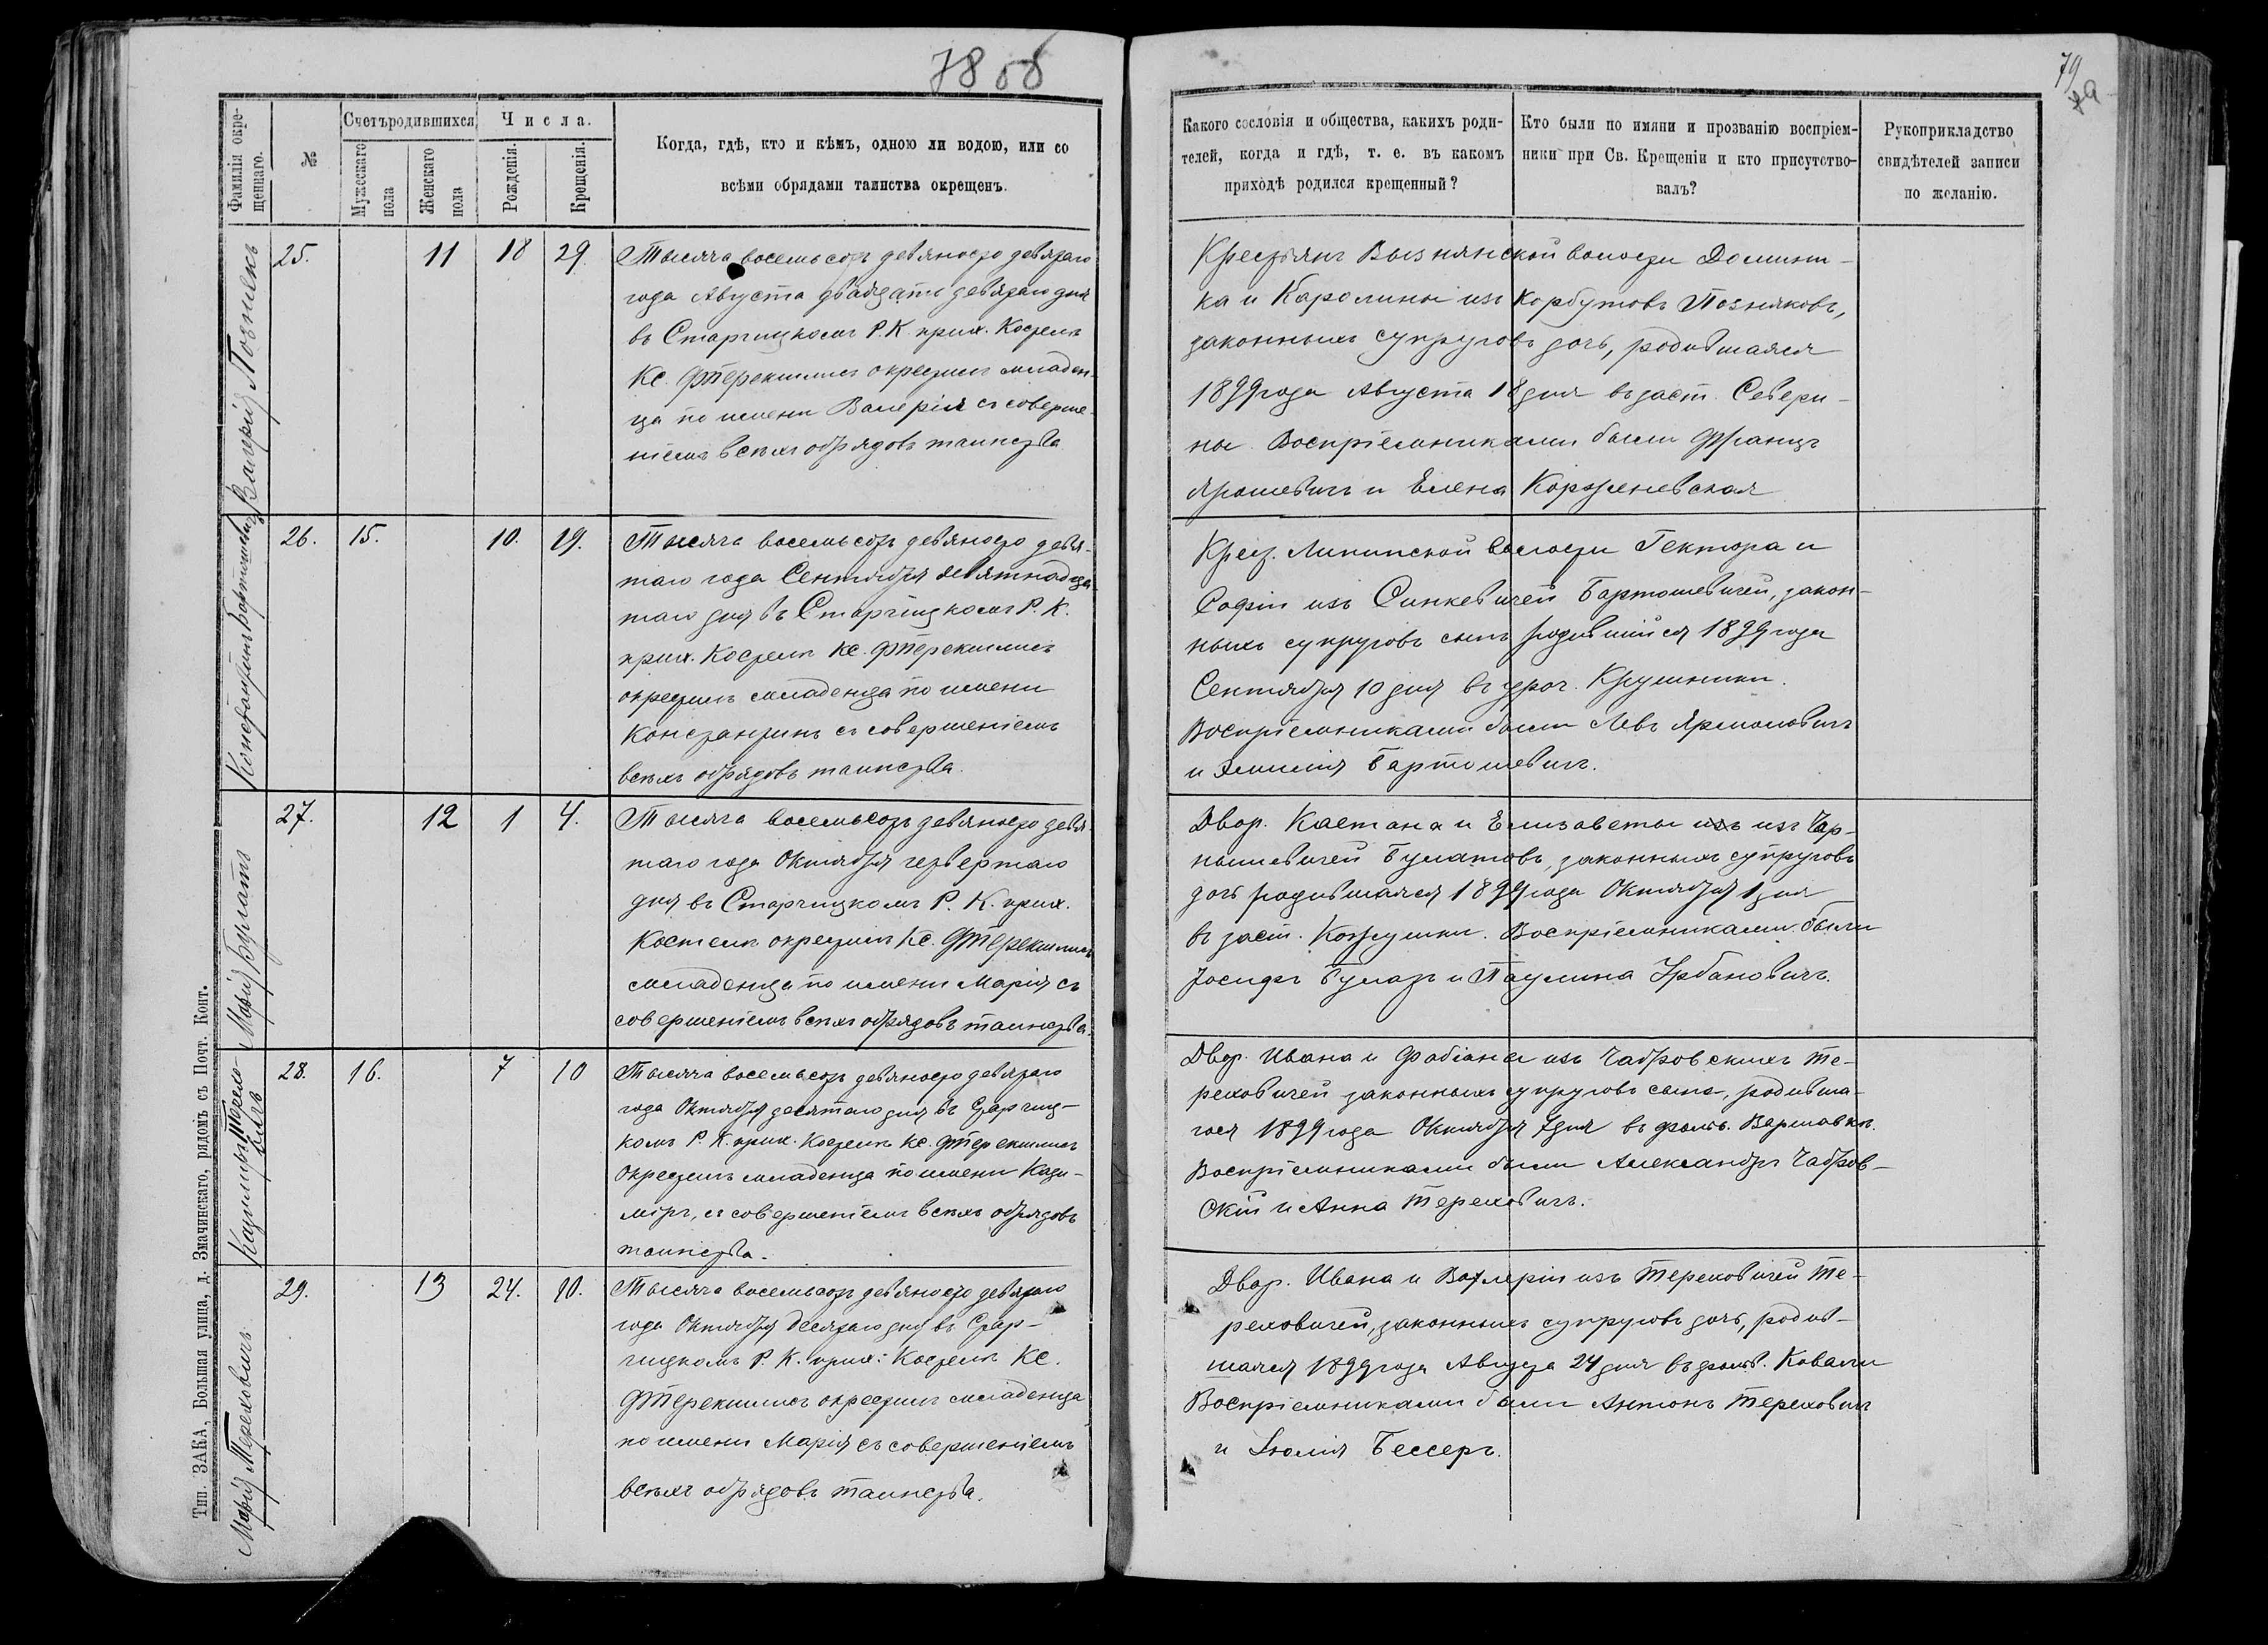 78 об
79
Фамилія окрещеннаго.
№
Счетъ родившихся
Мужескаго пола
Женскаго пола
Числа.
Рожденія.
Крещенія.
Когда, гдѣ, кто и кѣмъ, одною ли водою, или со
всѣми обрядами таинства окрещенъ.
Какого сословія и общества, какихъ роди-
телей, когда и гдѣ, т. е. въ какомъ
приходѣ родился крещенный?
Кто были по имяни и прозванію воспріем-
ники при Св. Крещеніи и кто присутство-
валъ?
Рукоприкладство
свидѣтелей записи
по желанію.
Валерія Познякъ
25. 11 18 29
Тысяча восемьсотъ девяносто девятаго
года Августа двадцать девятаго дня
въ Старчицкомъ Р. К. прих. Костелѣ
Кс. Фтерекшлисъ окрестилъ младен-
ца по имени Валерія съ соверше-
ніемъ всѣхъ обрядовъ таинства
Крестьянъ Вызнянской волости Домини-
ка и Каролины изъ Корбутовъ Позняковъ,
законныхъ супруговъ дочь, родившаяся
1899 года Августа 18 дня въ заст. Севери-
ны. Воспріемниками были Францъ
Ярошевичъ и Елена Корженевская
Константинъ Бартошевичъ
26. 15. 10. 19.
Тысяча восемьсотъ девяносто девя-
таго года Сентября девятнадца-
таго дня въ Старчицкомъ Р. К.
прих. Костелѣ Кс. Фтерекшлисъ
окрестилъ младенца по имени
Константинъ съ совершеніемъ
всѣхъ обрядовъ таинства.
Крест. Липинской волости Гектора и
Софіи изъ Синкевичей Бартошевичей, закон-
ныхъ супруговъ сынъ родившійся 1899 года
Сентября 10 дня въ уроч. Крушники.
Воспріемниками были Левъ Ярмоловичъ
и Эмилія Бартошевичъ.
Марія Булатъ
27. 12 1 4.
Тысяча восемьсотъ девяносто девя-
таго года Октября четвертаго
дня въ Старчицкомъ Р. К. прих.
Костелѣ окрестилъ Кс. Фтерекшлисъ
младенца по имени Марія съ
совершеніемъ всѣхъ обрядовъ таинства.
Двор. Каетана и Елизаветы изъ изъ Чар-
нышевичей Булатовъ, законныхъ супруговъ
дочь родившаяся 1899 года Октября 1 дня
въ заст. Кожушки. Воспріемниками были
Іосифъ Булатъ и Паулина Урбановичъ.
Казиміръ Терехо-
вичъ
28. 16. 7 10
Тысяча восемьсотъ девяносто девятаго
года Октября десятаго дня въ Старчиц-
комъ Р. К. прих. Костелѣ Кс. Фтерекшлисъ
окрестилъ младенца по имени Кази-
міръ, съ совершеніемъ всѣхъ обрядовъ
таинства.
Двор. Ивана и Фабіаны изъ Чабровскихъ Те-
реховичей законныхъ супруговъ сына, родивша-
гося 1899 года Октября 7 дня въ фольв. Варшавкѣ.
Воспріемниками были Александръ Чабров-
скій и Анна Тереховичъ.
Марія Тереховичъ.
29. 13 24. 10.
Тысяча восемьсотъ девяносто девятаго
года Октября десятаго дня въ Стар-
чицкомъ Р. К. прих: Костелѣ Кс.
Фтерекшлисъ окрестилъ младенца
по имени Марія съ совершеніемъ
всѣхъ обрядовъ таинства.
Двор. Ивана и Валеріи изъ Тереховичей Те-
реховичей, законныхъ супруговъ дочь, родив-
шаяся 1899 года Августа 24 дня въ фольв. Ковали
Воспріемниками были Антонъ Тереховичъ
и Юлія Бессеръ.
Тип. ЗАКА, Большая улица, д. Значинскаго, рядомъ съ Почт. Конт.